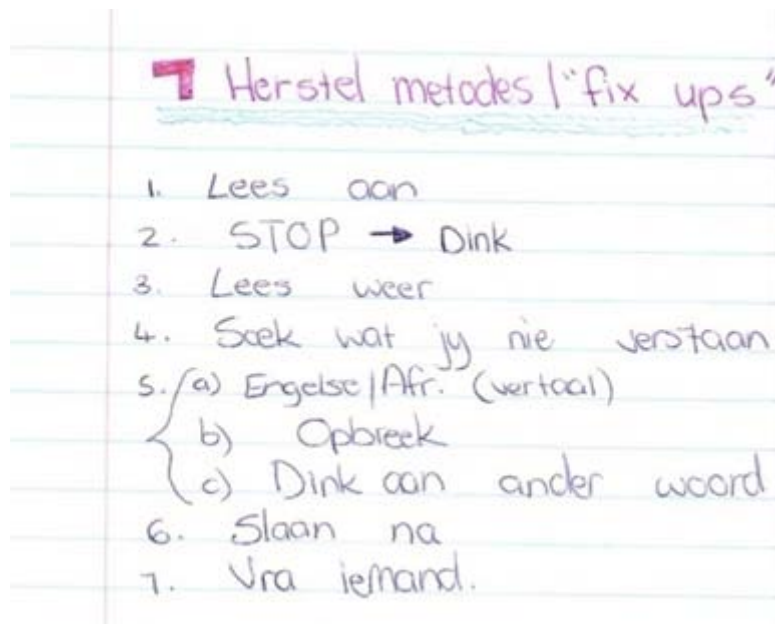 7 Herstel metodes / "fix ups"
1. Lees aan
2. STOP → Dink
3. Lees weer
4. Soek wat jy nie verstaan
5. (a) Engelse/Afr. (vertaal)
b) Opbreek
c) Dink aan ander woord
6. Slaan na
7. Vra iemand.